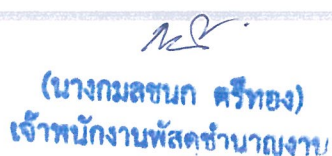 (นางกมลชนก ศรีทอง)
เจ้าพนักงานพัสดุชำนาญงาน